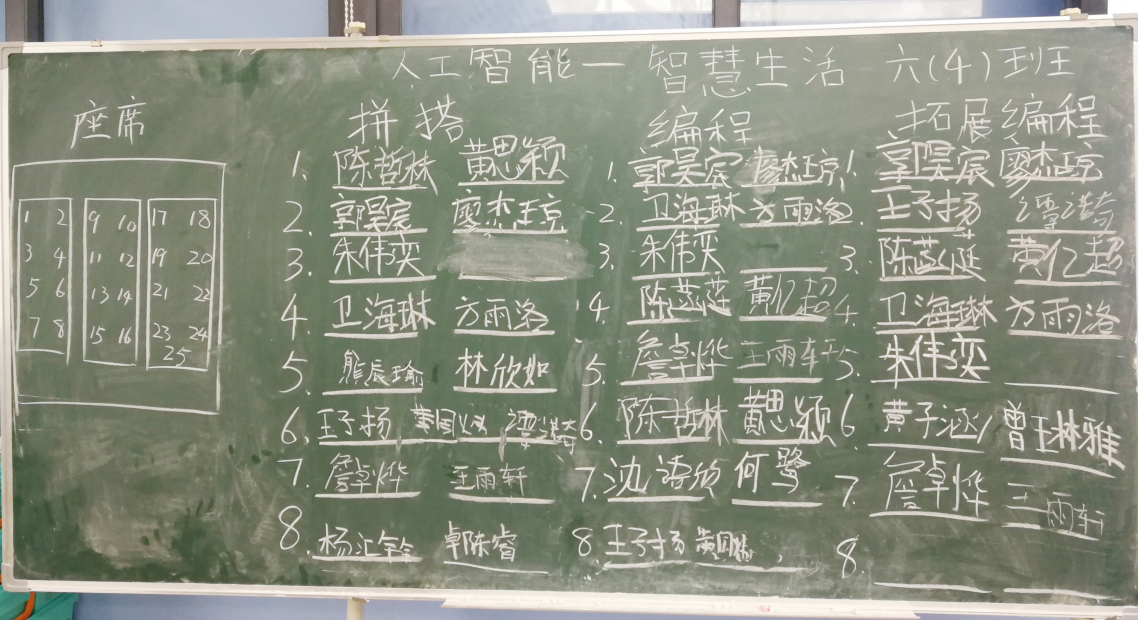 人工智能一智慧生活 六(4)班
座席
1 2 9 10 17 18
3 4 11 12 19 20
5 6 13 14 21 22
7 8 15 16 23 24
25
拼搭
1. 陈哲林 黄思颖
2. 郭昊宸 廖杰琼
3. 朱伟奕
4. 卫海琳 方雨洛
5. 熊辰瑜 林欣如
6. 王子扬
7. 詹卓烨 王雨轩
8. 杨汇铃 卓陈睿
编程
1. 郭昊宸 廖杰琼
2. 卫海琳 方雨洛
3. 朱伟奕
4. 陈蕊莛 黄亿超
5. 詹卓烨 王雨轩
6. 陈哲林 黄思颖
7. 沈 何鹭
8 王子扬
拓展编程
1. 郭昊宸 廖杰琼
2. 王子扬
3. 陈蕊莛 黄亿超
4. 卫海琳 方雨洛
5. 朱伟奕
6 黄子涵 曾王林雅
7. 詹卓烨 王雨轩
8.